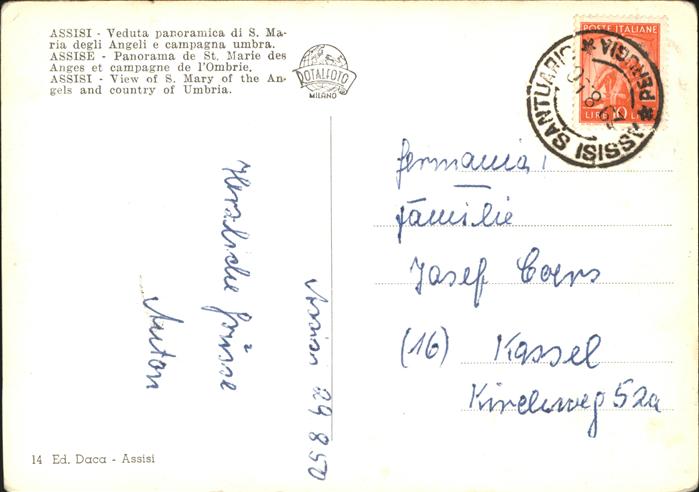 ASSISI - Veduta panoramica di S. Ma-
ria degli Angeli e campagna umbra.
ASSISE - Panorama de St. Marie des
Anges et campagne de l'Ombrie.
ASSISI - View of S. Mary of the An-
gels and country of Umbria.
ROTALFOTO
MILANO
POSTE ITALIANE
LIRE 10
ASSISI SANTUARIO
PERUGIA
Germania
Familie
Josef Coers
(16) Kassel
Kirchweg 52a
Assisi 29 8 50
Herzliche Grüsse
Anton
14 Ed. Daca - Assisi